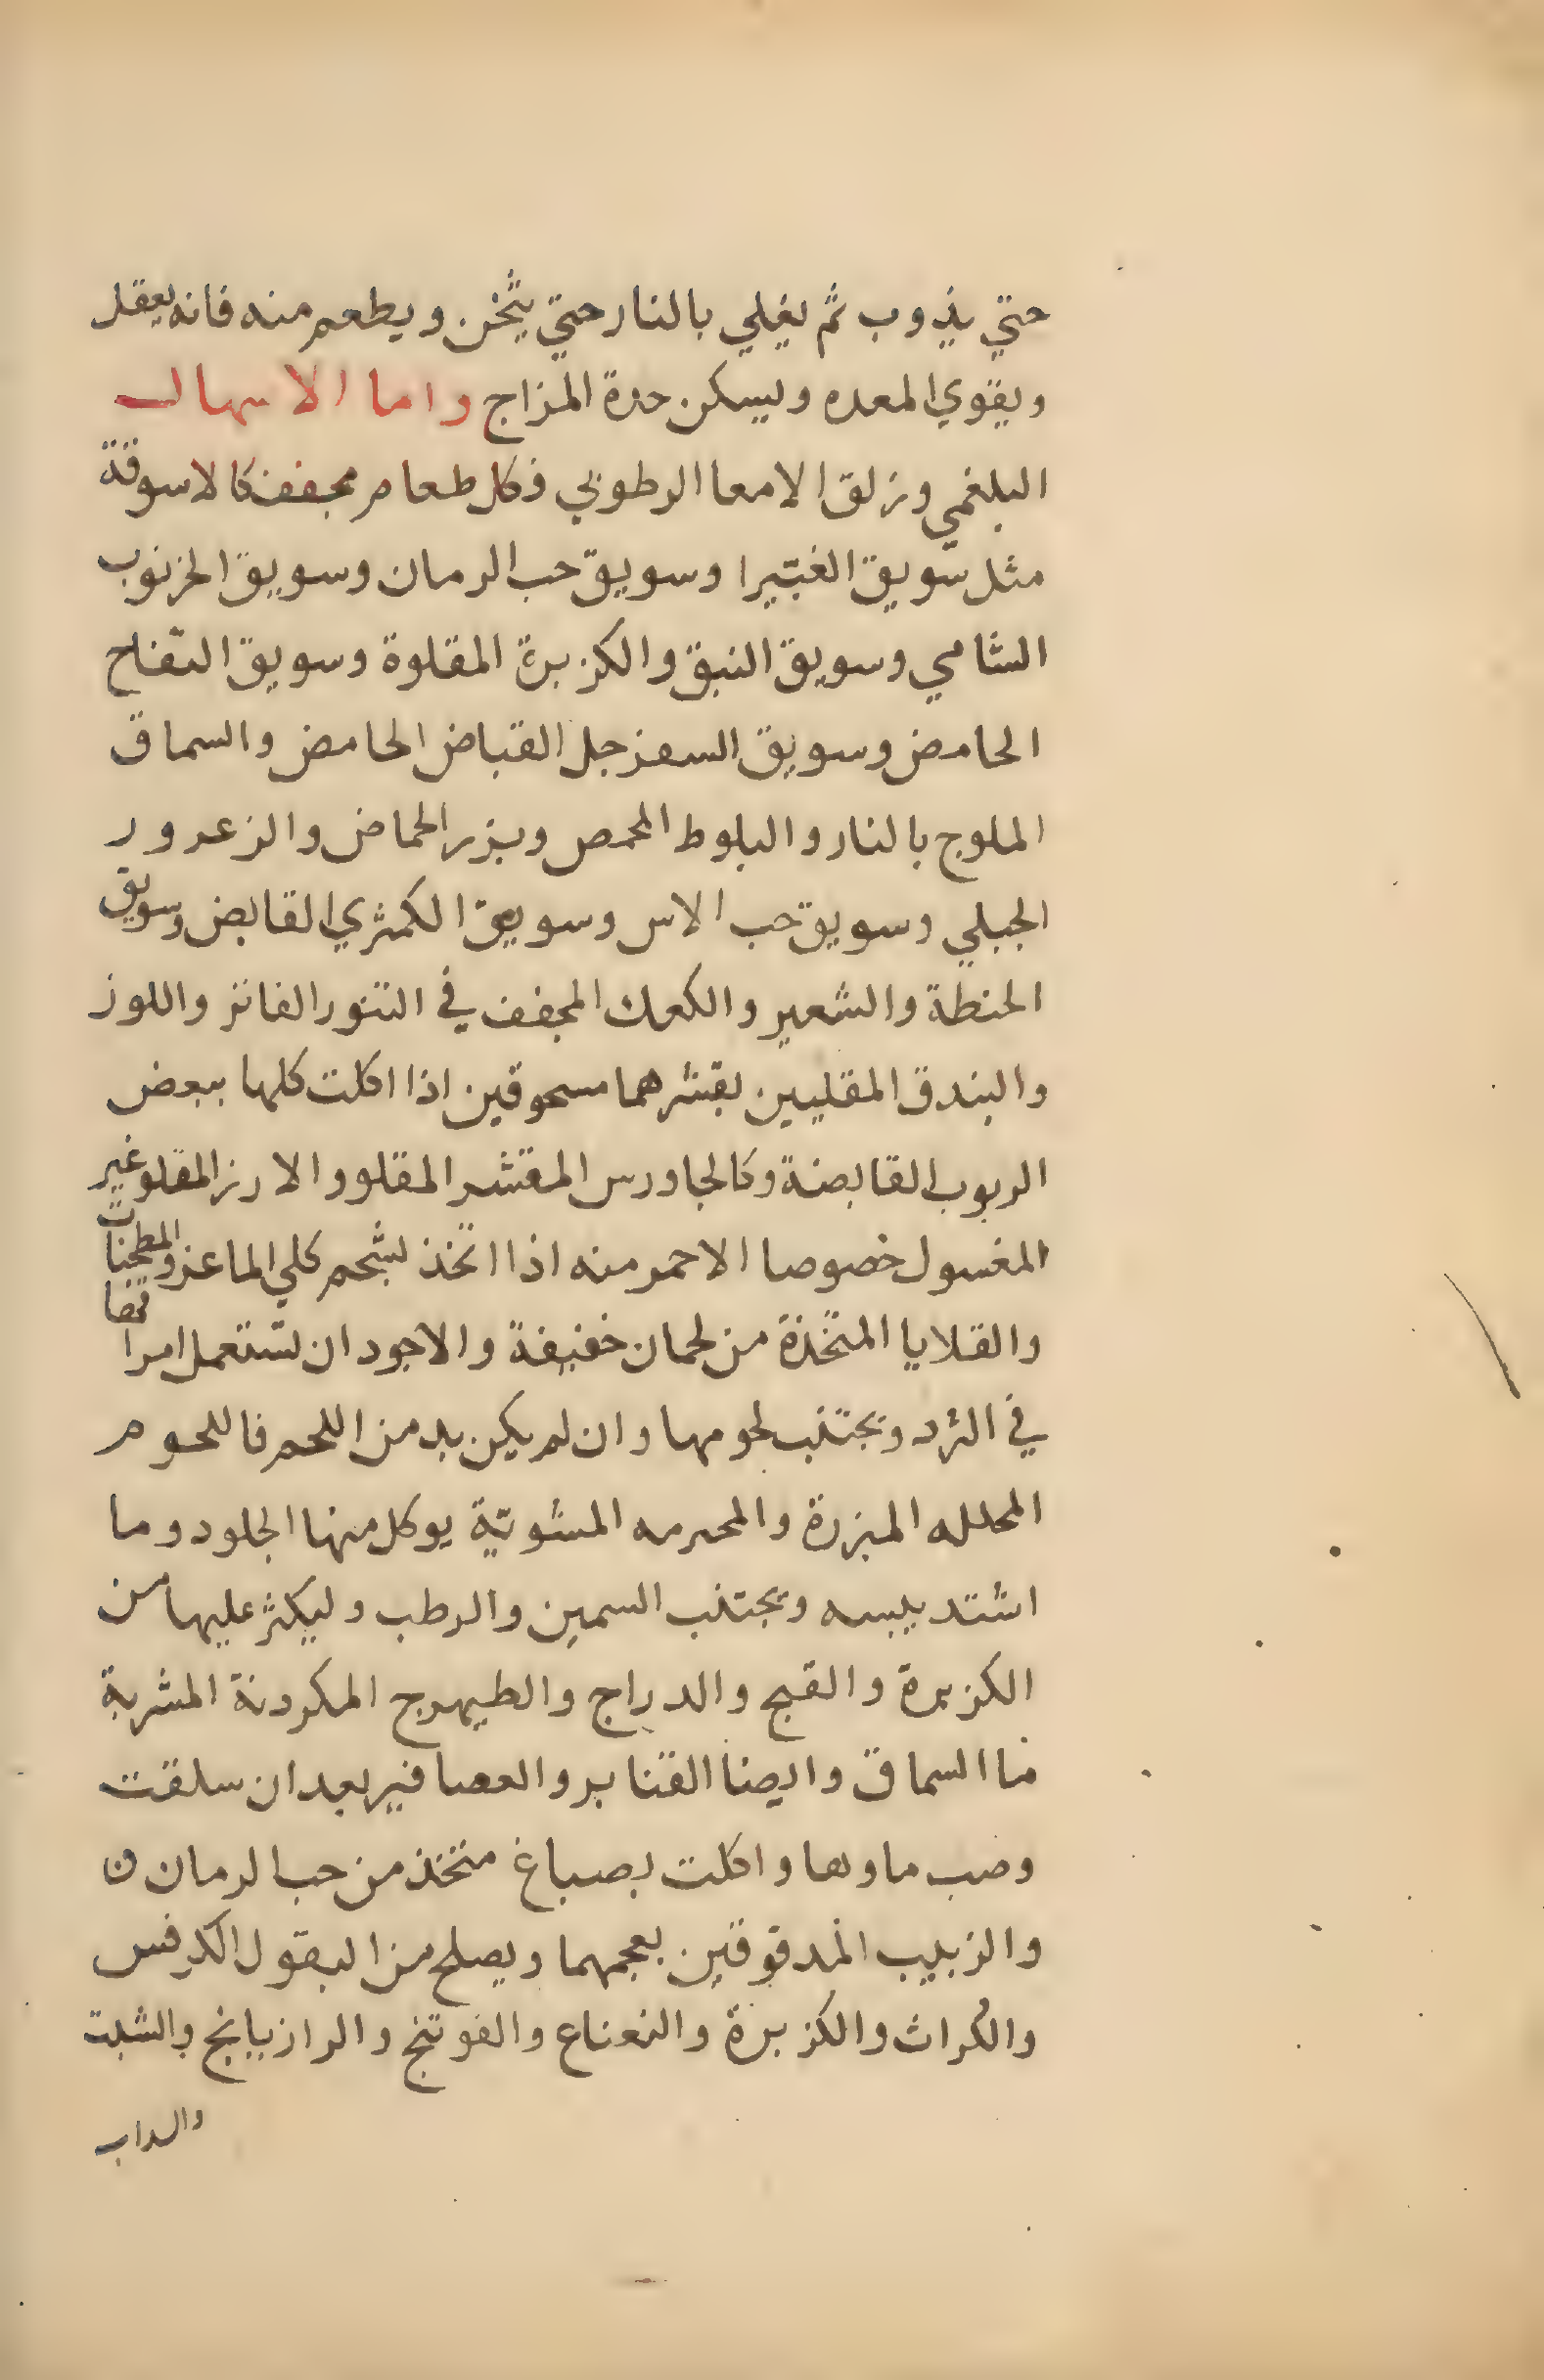 حتي يذوب ثم يغلي بالنار حتي يثخن ويطعم منه فانه يعقل
ويقوي المعده ويسكن حدة المزاج واما الاسهال
البلغمي وزلق الامعا الرطوبي فكل طعام مجفف كالاسوقة
مثل سويق الغبيرا وسويق حب الرمان وسويق الخرنوب
الشامي وسويق النبق والكزبرة المقلوة وسويق التفاح
الحامض وسويق السفرجل القباض الحامض والسماق
الملوج بالنار والبلوط المحمص وبزر الحماض والزعرور
الجبلي وسويق حب الاس وسويق الكمثري القابض وسويق
الحنطة والشعير والكعك المجفف في التنور الفاتر واللوز
والبندق المقليين بقشرهما مسحوقين اذا اكلت كلها ببعض
الربوب القابضة وكالجاورس المقشر المقلو والارز المقلو غير
المغسول خصوصا الاحمر منه اذا اتخذ بشحم كلي الماعز والمطجنات
والقلايا المتخذة من لحمان خفيفة والاجود ان تستعمل امراقها
في الثرد وتجتنب لحومها وان لم يكن بد من اللحم فاللحوم
المخلله المبزرة والمحرمه المشوية يوكل منها الجلود وما
اشتد يبسه وتجتنب السمين والرطب وليكثر عليها من
الكزبرة والقبج والدراج والطيهوج المكردنة المشربة
ما السماق وايضا القنابر والعصافير بعد ان سلقت
وصب ماوها واكلت بصباغ متخذ من حب الرمان ن
والزبيب المدقوقين بعجمهما ويصلح من البقول الكرفس
والكراث والكزبرة والنعناع والفوتنج والرازيانج والشبت